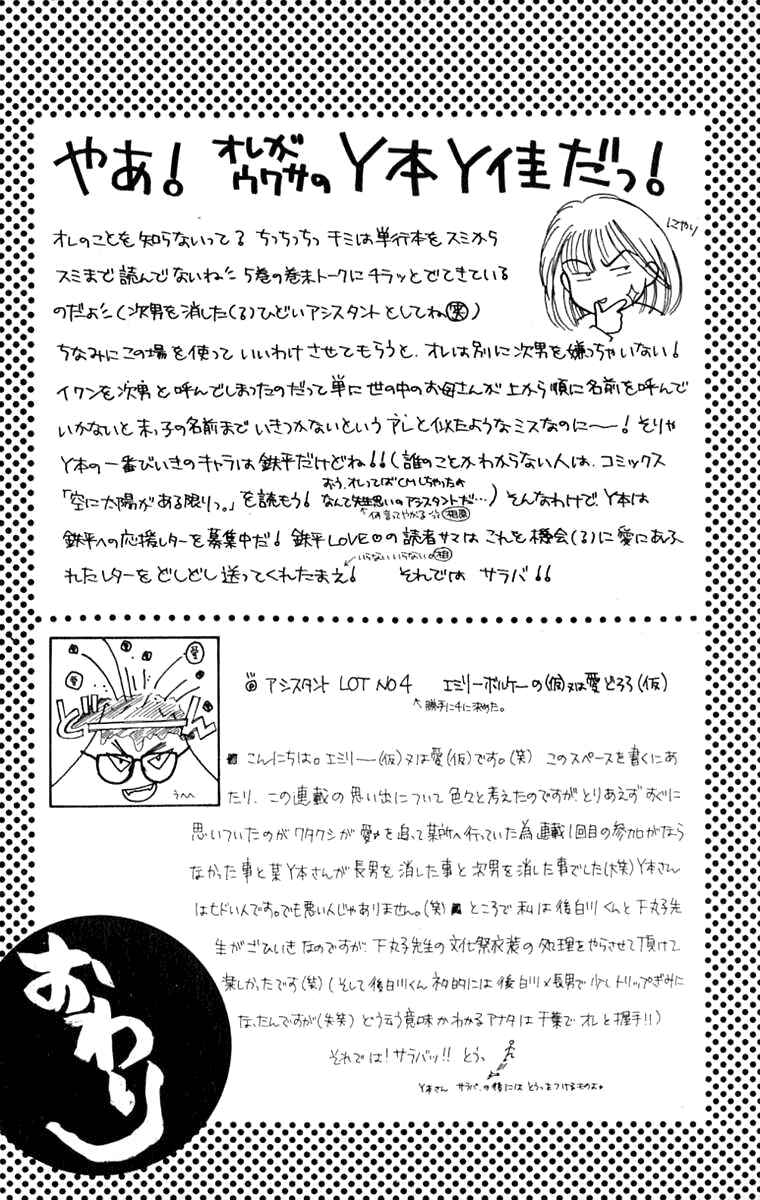 やあ! オレがウワサの Y本Y佳だっ!
にやり
オレのことを知らないってる ちっちっちっ キミは単行本をスミから
スミまで読んでないね 5巻の巻末トークにチラッとでてきている
のだよ (次男を消した(る)ひどいアシスタントとしてね笑)
ちなみにこの場を使っていいわけさせてもらうと、オレは別に次男を嫌っちゃいない!
イワンを次男と呼んでしまったのだって単に世の中のお母さんが上から順に名前を呼んで
いかないと末っ子の名前までいきつかないというアレと似たようなミスなのに〜!そりゃ
Y本の一番びいきのキャラは鉄平だけどね!!(誰のことかわからない人は、コミックス
「空に太陽がある限りっ。」を読もう! おう、オレってばCMしちゃったよ なんて先生思いのアシスタントだ…)そんなわけで、Y本は
何言ってやがる
鉄平への応援レターを募集中だ! 鉄平LOVE♡の読者サマはこれを機会(る)に愛にあふ
いらないいらない。
れたレターをどしどし送ってくれたまえ! それでは サラバ!!
愛
どっかん
うへへ
アシスタント LOT NO4 エミリーボルケーの(仮)又は愛どろろ(仮)
勝手に4に決めた。
こんにちは。エミリー(仮)又は愛(仮)です。(笑) このスペースを書くにあ
たり、この連載の思い出について色々と考えたのですがとりあえずすぐに
思いついたのがワタクシが愛を追って某所へ行っていた為連載1回目の参加がなら
なかった事と某Y本さんが長男を消した事と次男を消した事でした(大笑)Y本さん
はヒドい人です。でも悪い人じゃありません。(笑) ところで私は後白川くんと下丸子先
生がごひいきなのですが、下丸子先生の文化祭衣装の処理をやらせて頂けて
楽しかったです(笑)(そして後白川くん 初的には後白川×長男で少しトリップぎみに
なったんですが(失笑) どう云う意味かわかるアナタは千葉でオレと握手!!)
それでは! サラバッ!! とうっ
Y本さん サラバ、の後には とうっをつけるものよ。
おわり